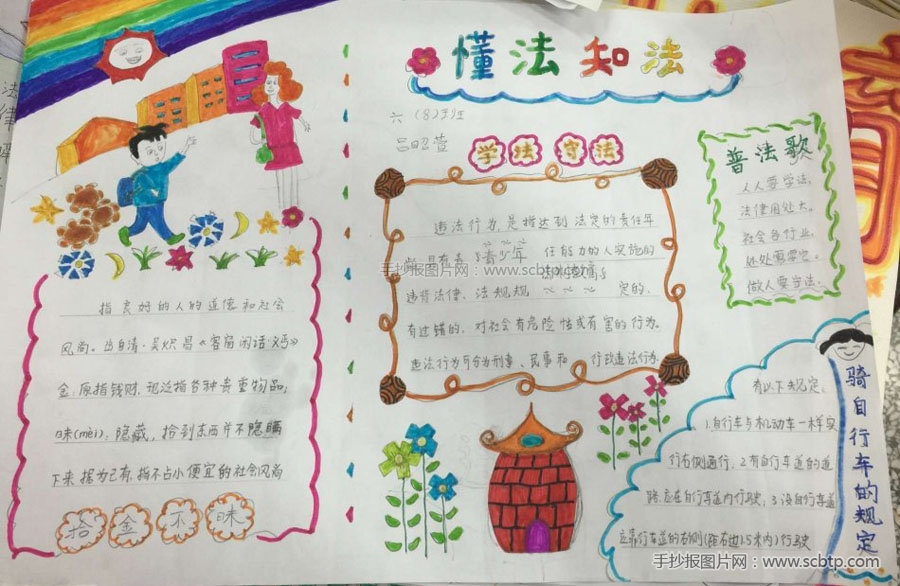 懂法知法
六（8）班
吕昭萱
学法守法
违法行为,是指达到法定的责任年
任能力的人实施的
违背法律、法规规 定的,
有过错的、对社会有危险性或有害的行为。
违法行为可分为刑事、民事和 行政违法行为。
普法歌
人人要学法,
法律用处大。
社会各行业,
处处需要它。
做人要守法.
指良好的人的道德和社会
风尚。出自清·吴炽昌《客窗闲话·义丐》
金:原指钱财,现泛指各种贵重物品,
昧(mèi):隐藏,拾到东西并不隐瞒
下来据为己有,指不占小便宜的社会风尚
拾金不昧
骑自行车的规定
有以下规定,
1.自行车与机动车一样实
行右侧通行,2.有自行车道的道
路,应在自行车道内行驶,3.没自行车道
应靠行车道的右侧(距右边1.5米内)行驶
手抄报图片网：www.scbtp.com
手抄报图片网：www.scbtp.com